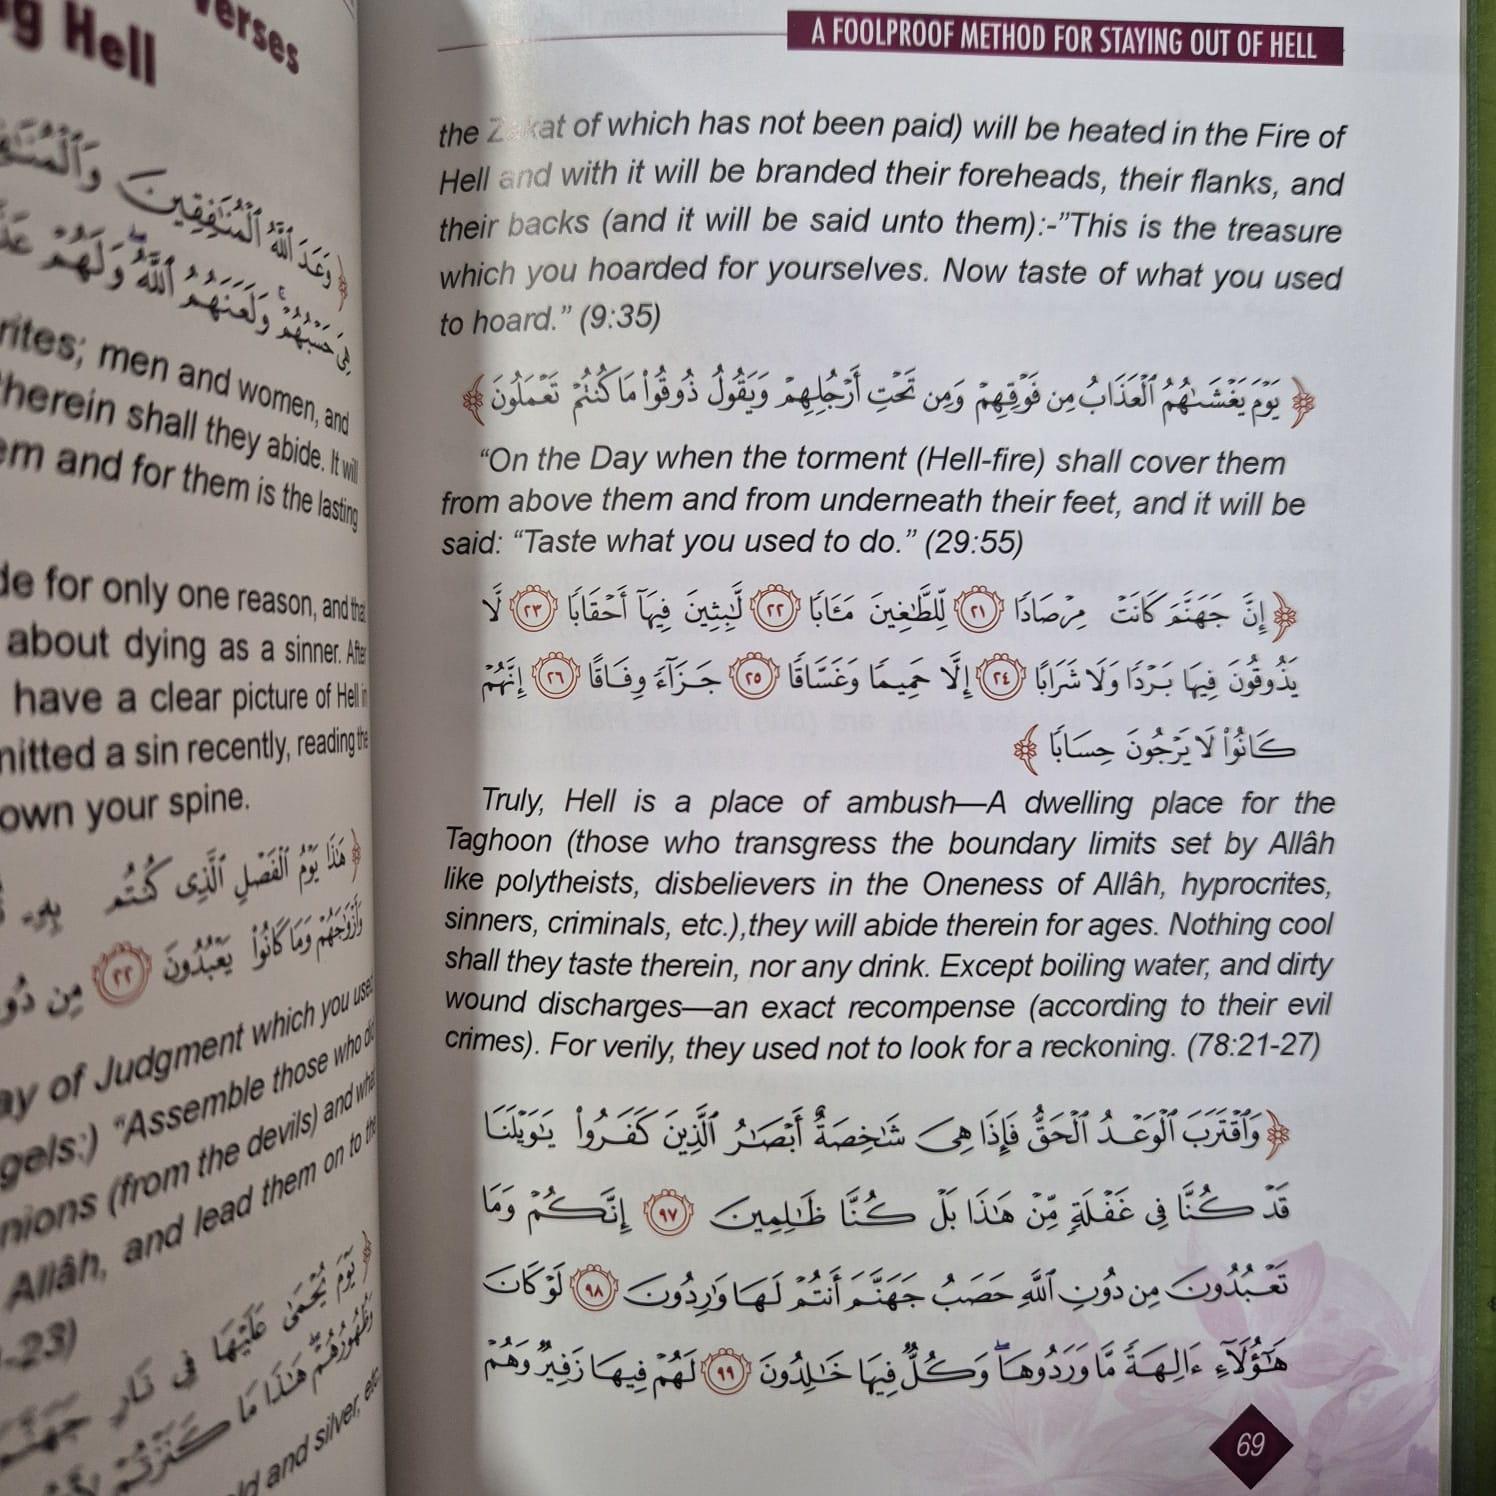 Verses
g Hell
﴿ وَعَدَ ٱللَّهُ ٱلْمُنَٰفِقِينَ
هِىَ حَسْبُهُمْ ۚ وَلَعَنَهُمُ ٱللَّهُ ۖ وَلَهُمْ
rites; men and women, and
herein shall they abide. It will
em and for them is the lasting
de for only one reason, and that
about dying as a sinner. After
have a clear picture of Hell in
mitted a sin recently, reading the
own your spine.
﴿ هَٰذَا يَوْمُ ٱلْفَصْلِ ٱلَّذِى كُنتُم بِهِۦ
وَأَزْوَٰجَهُمْ وَمَا كَانُوا۟ يَعْبُدُونَ ٢٢ مِن دُو
ay of Judgment which you used
gels:) "Assemble those who did
nions (from the devils) and what
Allâh, and lead them on to the
-23)
﴿ يَوْمَ يُحْمَىٰ عَلَيْهَا فِى نَارِ جَهَنَّمَ
وَظُهُورُهُمْ ۖ هَٰذَا مَا كَنَزْتُمْ
ld and silver, etc.
A FOOLPROOF METHOD FOR STAYING OUT OF HELL
the Zakat of which has not been paid) will be heated in the Fire of
Hell and with it will be branded their foreheads, their flanks, and
their backs (and it will be said unto them):-"This is the treasure
which you hoarded for yourselves. Now taste of what you used
to hoard." (9:35)
﴿ يَوْمَ يَغْشَىٰهُمُ ٱلْعَذَابُ مِن فَوْقِهِمْ وَمِن تَحْتِ أَرْجُلِهِمْ وَيَقُولُ ذُوقُوا۟ مَا كُنتُمْ تَعْمَلُونَ ﴾
"On the Day when the torment (Hell-fire) shall cover them
from above them and from underneath their feet, and it will be
said: "Taste what you used to do." (29:55)
﴿ إِنَّ جَهَنَّمَ كَانَتْ مِرْصَادًا ٢١ لِّلطَّٰغِينَ مَـَٔابًا ٢٢ لَّٰبِثِينَ فِيهَآ أَحْقَابًا ٢٣ لَّا
يَذُوقُونَ فِيهَا بَرْدًا وَلَا شَرَابًا ٢٤ إِلَّا حَمِيمًا وَغَسَّاقًا ٢٥ جَزَآءً وِفَاقًا ٢٦ إِنَّهُمْ
كَانُوا۟ لَا يَرْجُونَ حِسَابًا ﴾
Truly, Hell is a place of ambush—A dwelling place for the
Taghoon (those who transgress the boundary limits set by Allâh
like polytheists, disbelievers in the Oneness of Allâh, hyprocrites,
sinners, criminals, etc.),they will abide therein for ages. Nothing cool
shall they taste therein, nor any drink. Except boiling water, and dirty
wound discharges—an exact recompense (according to their evil
crimes). For verily, they used not to look for a reckoning. (78:21-27)
﴿ وَٱقْتَرَبَ ٱلْوَعْدُ ٱلْحَقُّ فَإِذَا هِىَ شَٰخِصَةٌ أَبْصَٰرُ ٱلَّذِينَ كَفَرُوا۟ يَٰوَيْلَنَا
قَدْ كُنَّا فِى غَفْلَةٍ مِّنْ هَٰذَا بَلْ كُنَّا ظَٰلِمِينَ ٩٧ إِنَّكُمْ وَمَا
تَعْبُدُونَ مِن دُونِ ٱللَّهِ حَصَبُ جَهَنَّمَ أَنتُمْ لَهَا وَٰرِدُونَ ٩٨ لَوْ كَانَ
هَٰٓؤُلَآءِ ءَالِهَةً مَّا وَرَدُوهَا ۖ وَكُلٌّ فِيهَا خَٰلِدُونَ ٩٩ لَهُمْ فِيهَا زَفِيرٌ وَهُمْ
69